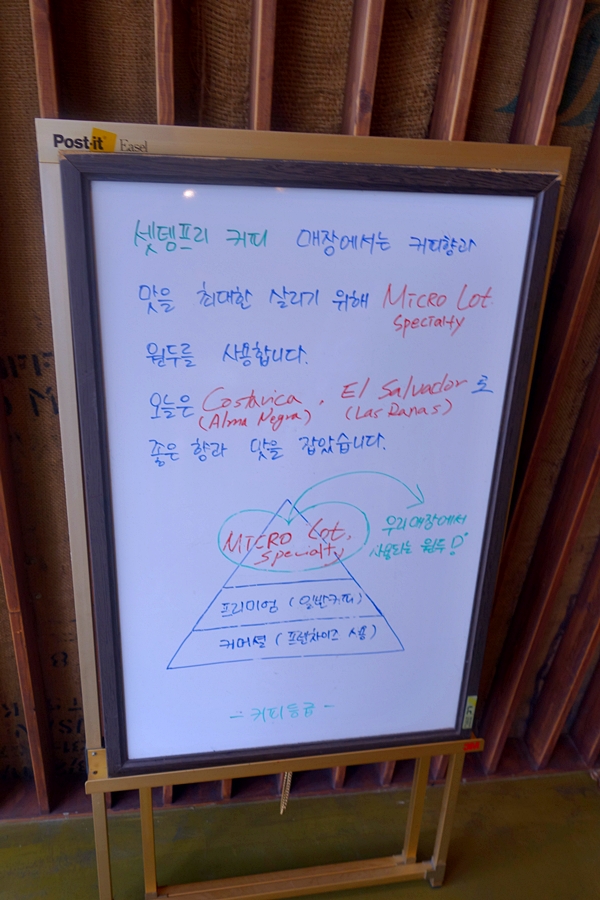 Post-it Easel
셋템프리 커피 매장에서는 커피향과
맛을 최대한 살리기 위해 MICRO Lot
Specialty
원두를 사용합니다.
오늘은 Costarica , El Salvador 로
(Alma Negra) (Las Ranas)
좋은 향과 맛을 잡았습니다.
MICRO Lot,
Specialty
우리매장에서
사용되는 원두!
프리미엄 (일반커피)
커머셜 (프랜차이즈 샵)
- 커피등급 -
3M